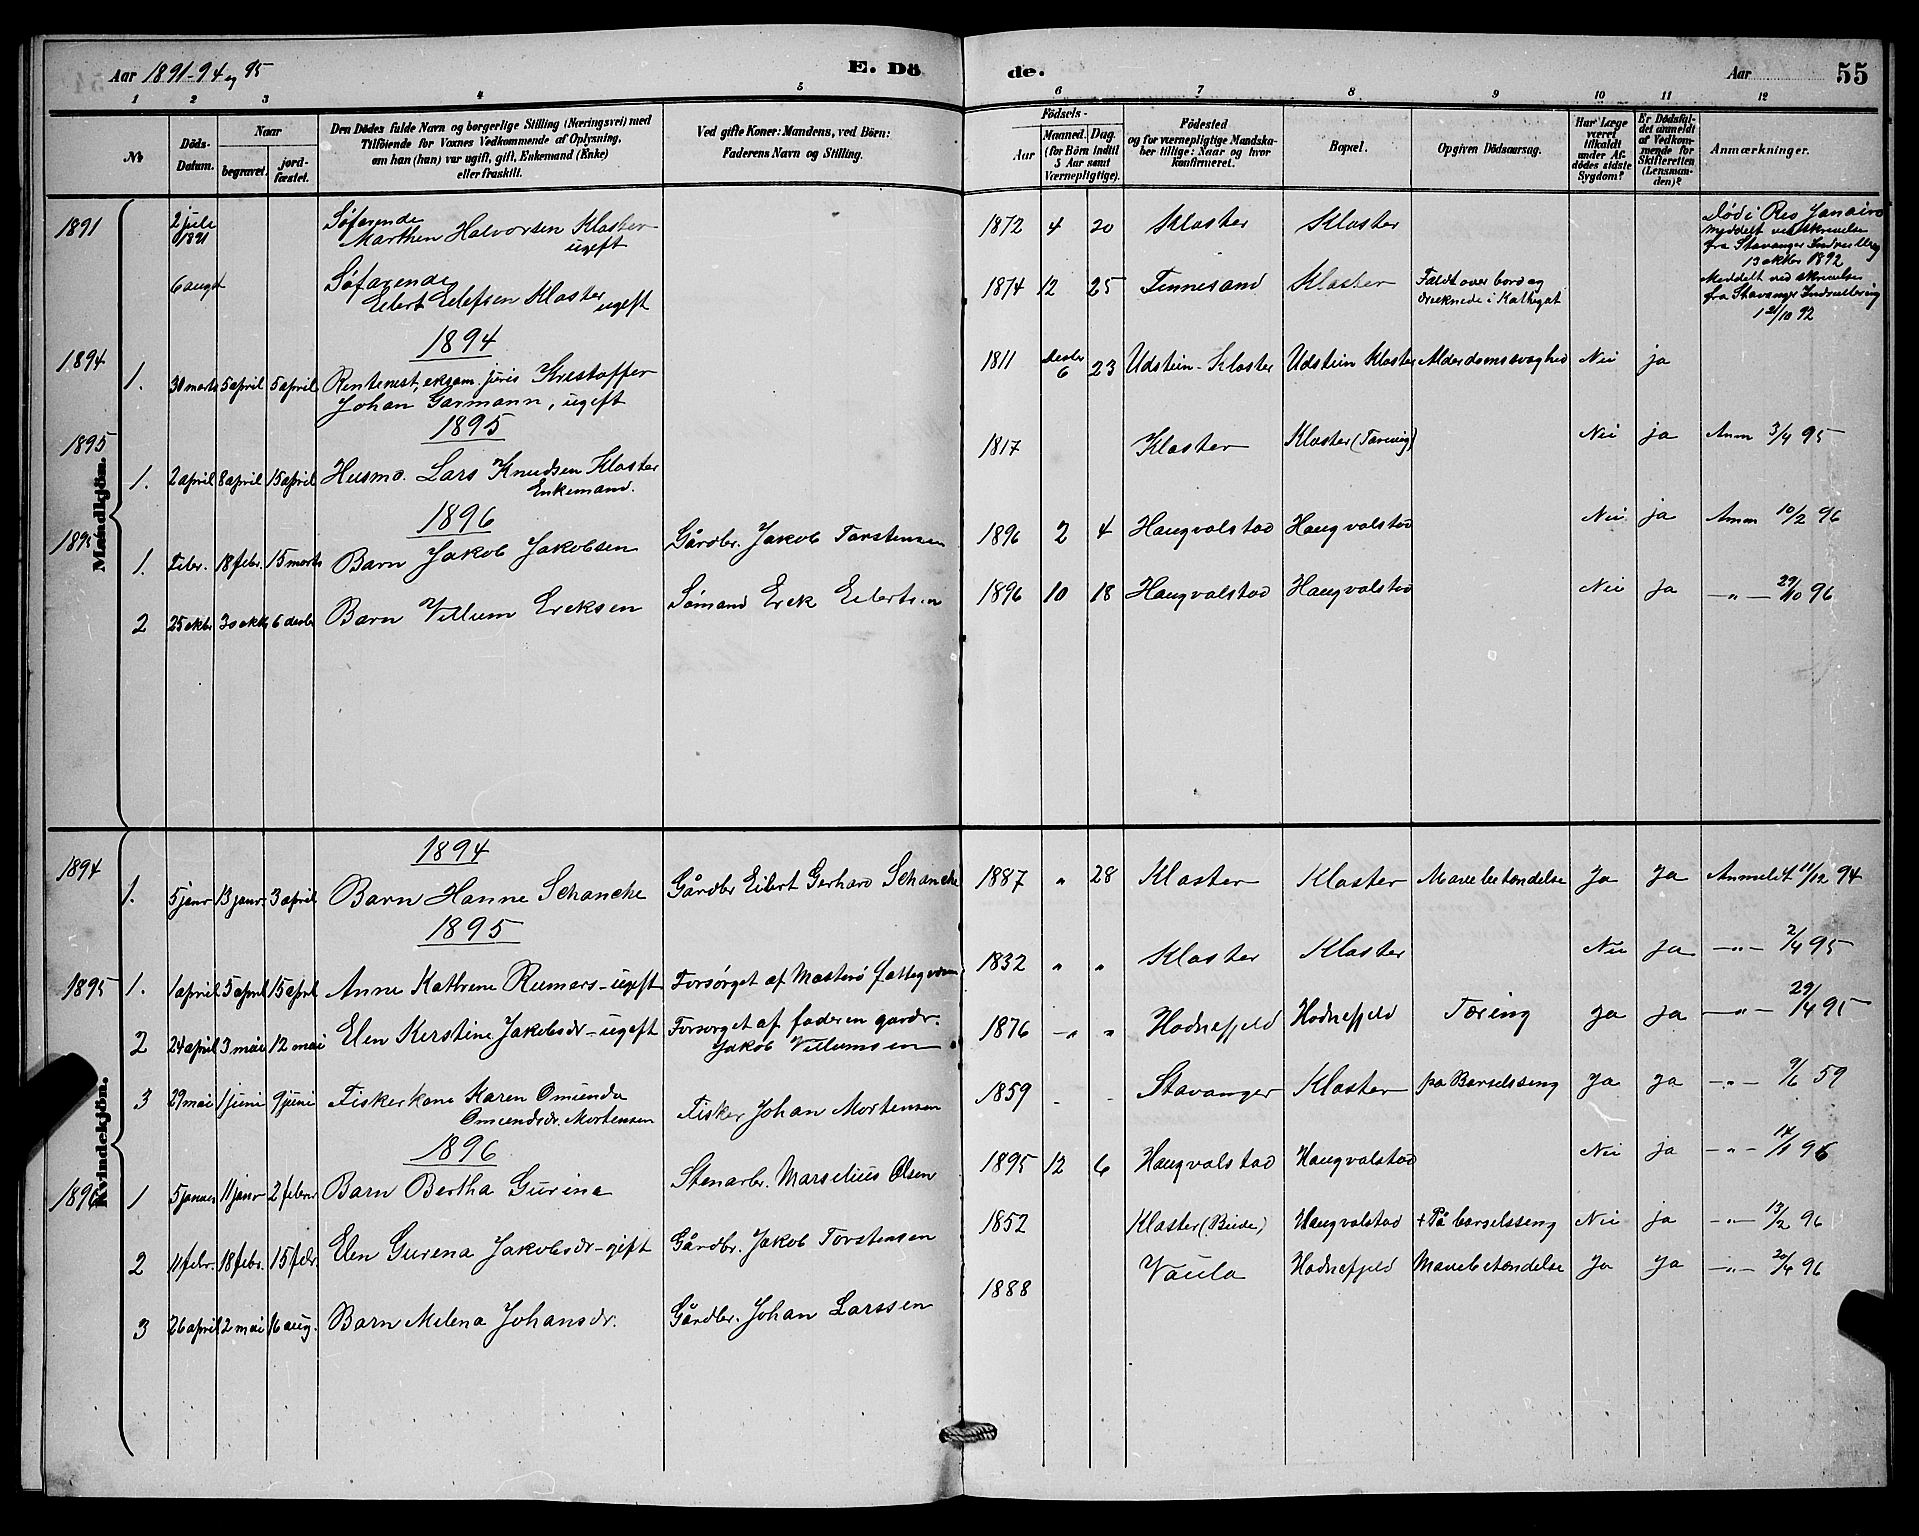 Aar 1891-94 og 95 E. Dö
de. Aar 55
1 2 3 4 5
6 7 8 9 10 11 12
№
Döds-
Datum.
Naar
begravet.
jord-
fæstet.
Den Dödes fulde Navn og borgerlige Stilling (Næringsvei) med
Tilföiende for Voxnes Vedkommende af Oplysning,
om han (hun) var ugift, gift, Enkemand (Enke)
eller fraskilt.
Ved gifte Koner: Mandens, ved Börn:
Faderens Navn og Stilling.
Födsels-
Aar
Maaned. Dag.
(for Börn indtil
5 Aar samt
Værnepligtige).
Födested
og for værnepligtige Mandska-
ber tillige: Naar og hvor
konfirmeret.
Bopæl.
Opgiven Dödsaarsag.
Har Læge
været
tilkaldt
under Af-
dödes sidste
Sygdom?
Er Dödsfal-
det anmeldt
af Vedkom-
mende for
Skifteretten
(Lensman-
den)?
Anmærkninger.
Mandkjön.
1891 2 juli 1891 Søfarende
Marthen Halvorsen Kloster
ugift
1872 4 20 Kloster Kloster
Død i Rio Janairo
meddelt ved skrivelse
fra Stavanger Indrullering
13 oktbr 1892
6 augst Søfarende
Eilert Eilefsen Kloster
ugift
1874 12 25 Tennesand Kloster Faldt over bord og
druknede i Kattegat
Meddelt ved skrivelse
fra Stavanger Indrullering
21/10 92
1894
1894 1. 30 marts 5 april 5 april Rentenist, eksam. juris Kristoffer
Johan Garmann, ugift
1811 Decbr 6 23 Udstein-Kloster Udstein Kloster Alderdomssvaghed Nei ja
1895
1895 1. 2 april 8 april 15 april Husmd. Lars Knudsen Kloster
Enkemand.
1817 Kloster Kloster Nei ja Anm 3/4 95
1896
1895 1. Febr. 18 febr. 15 marts Barn Jakob Jakobsen Gårdbr. Jakob Torstensen
1896 2 4 Haugvalstad Haugvalstad Nei ja Anm 10/2 96
2 25 oktbr 30 oktb 6 decbr Barn Villum Ereksen Sømand Erek Eilertsen
1896 10 18 Haugvalstad Haugvalstad Nei ja -"- 29/10 96
Kvindekjön.
1894
1894 1. 5 janr 13 janr 3 april Barn Hanne Schancke Gårdbr Eilert Gerhard Schancke
1887 " 28 Kloster Kloster Mavebetændelse Ja Ja Anmeldt 11/12 94
1895
1895 1. 1 april 5 april 15 april Anne Kathrine Rumars - ugift Forsørget af Mosterø fattigvæsen
1832 " " Kloster Kloster Nei ja -"- 2/4 95
2 24 april 3 mai 12 mai Elen Kerstine Jakobsdr - ugift Forsørget af faderen gardr.
Jakob Villumsen
1876 -" " Hodnefjeld Hodnefjeld Tæring Ja ja -"- 29/4 95
3 29 mai 1 juni 9 juni Fiskerkone Karen Omunda
Omundsdr. Mortensen
Fisker Johan Mortensen
1859 - - Stavanger Kloster på Barselsseng Ja Ja -"- 9/6 59
1896
1896 1 5 januar 11 janr 2 febrr Barn Bertha Gurina Stenarbr. Marselius Olsen
1895 12 6 Haugvalstad Haugvalstad Nei ja -"- 96
2 11 febr. 18 febr. 15 febr. Elen Gurina Jakobsdr - gift Gårdbr. Jakob Torstensen
1852 Kloster Haugvalstad + På barselsseng Nei ja -"- 13/2 96
3 26 april 2 mai 16 aug. Barn Melena Johansdr. Gårdbr. Johan Larssen
1888 Vaula Hodnefjeld Mavebetændelse Ja Ja -"- 20/4 96